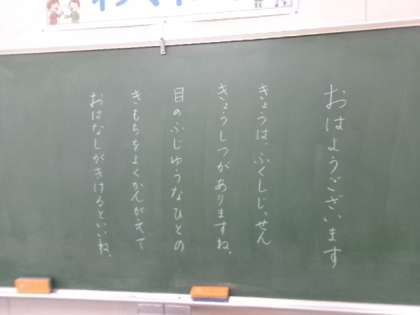 おはようございます
きょうは、ふくしじっせん
きょうしつがありますね。
目のふじゆうなひとの
きもちをよくかんがえて
おはなしがきけるといいね。